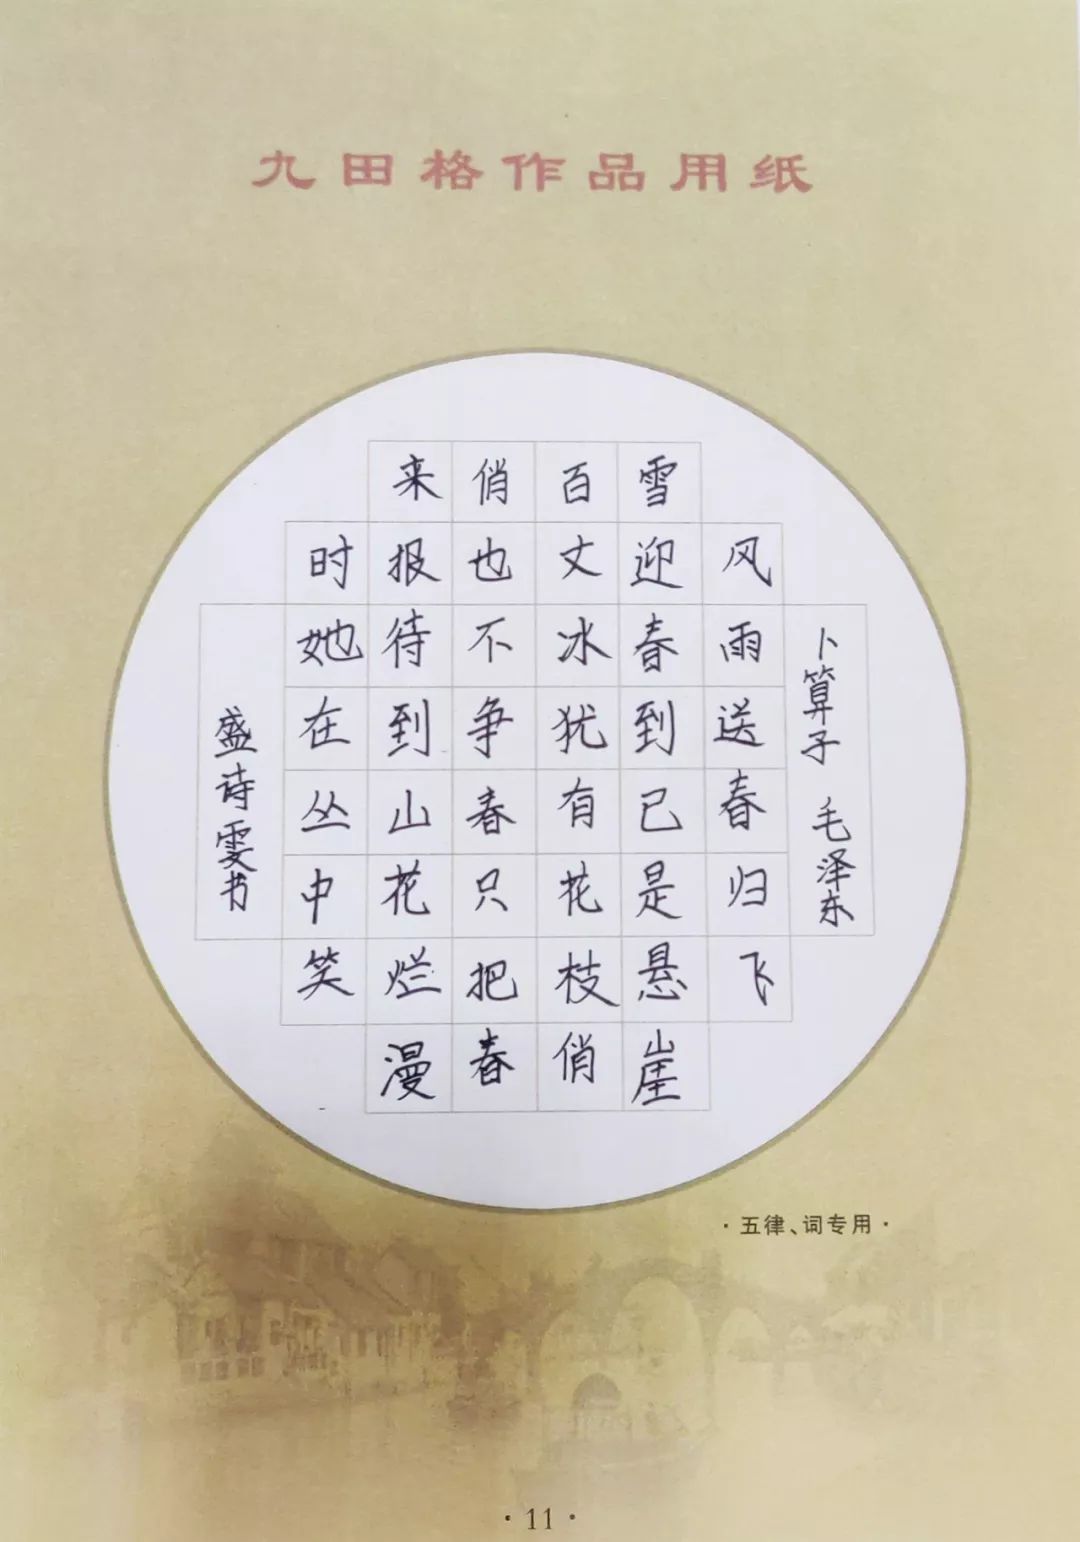 九田格作品用纸
卜算子 毛泽东
风雨送春归飞
雪迎春到已是悬崖
百丈冰犹有花枝俏
俏也不争春只把春
来报待到山花烂漫
时她在丛中笑
盛诗雯书
·五律、词专用·
·11·